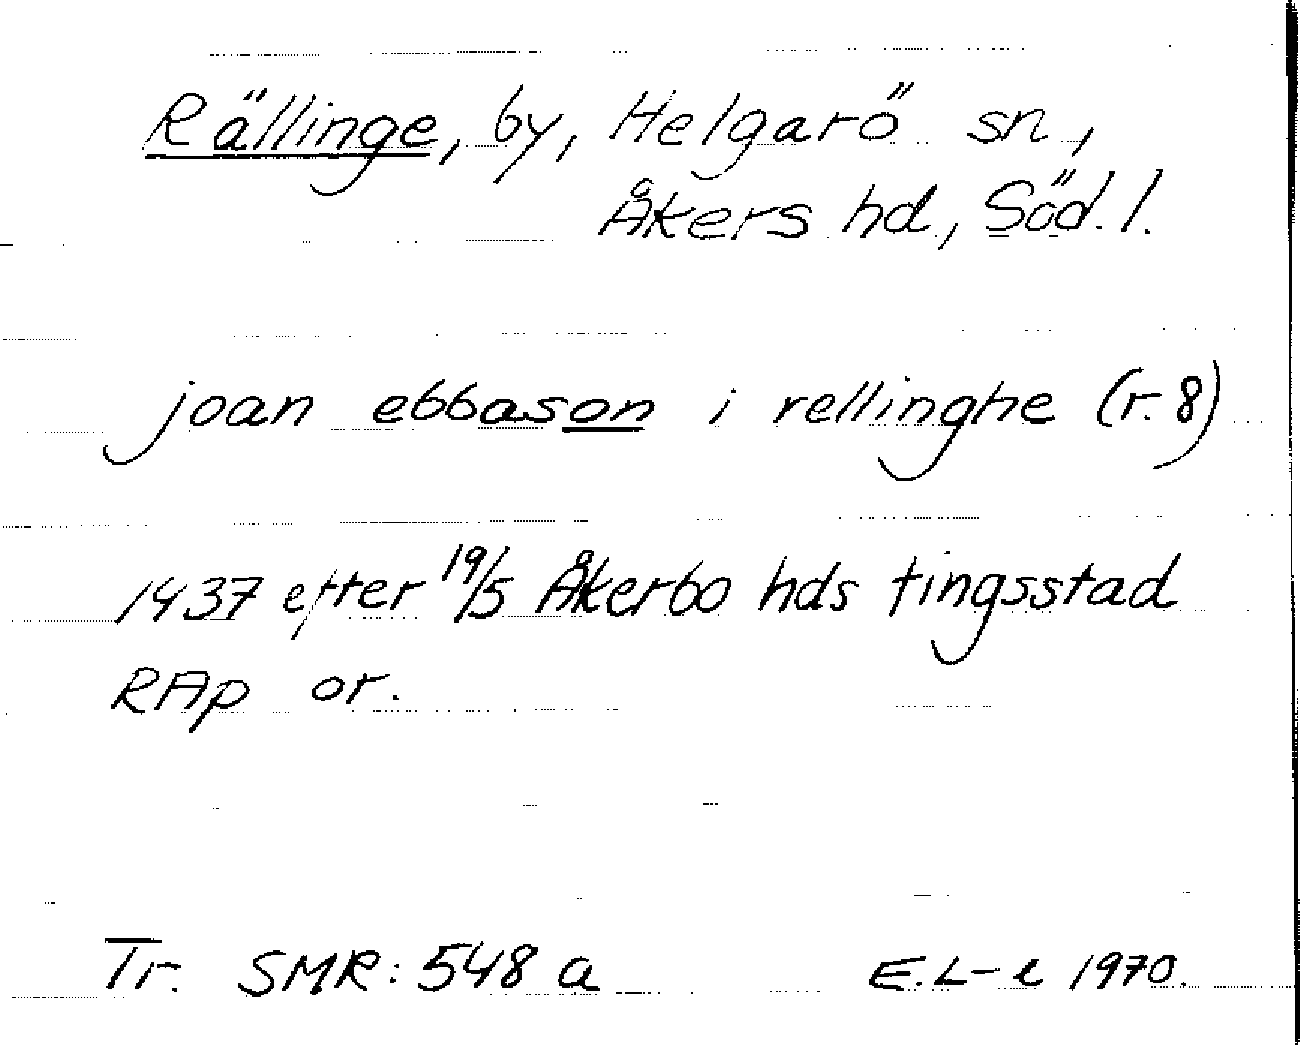 Rällinge, by, Helgarö sn.,
Åkers hd, Söd. l.
joan ebbason i rellinghe (r. 8)
1437 efter 19/5 Åkerbo hds tingsstad
RAp or.
Tr. SMR: 548 a E.L-l 1970.